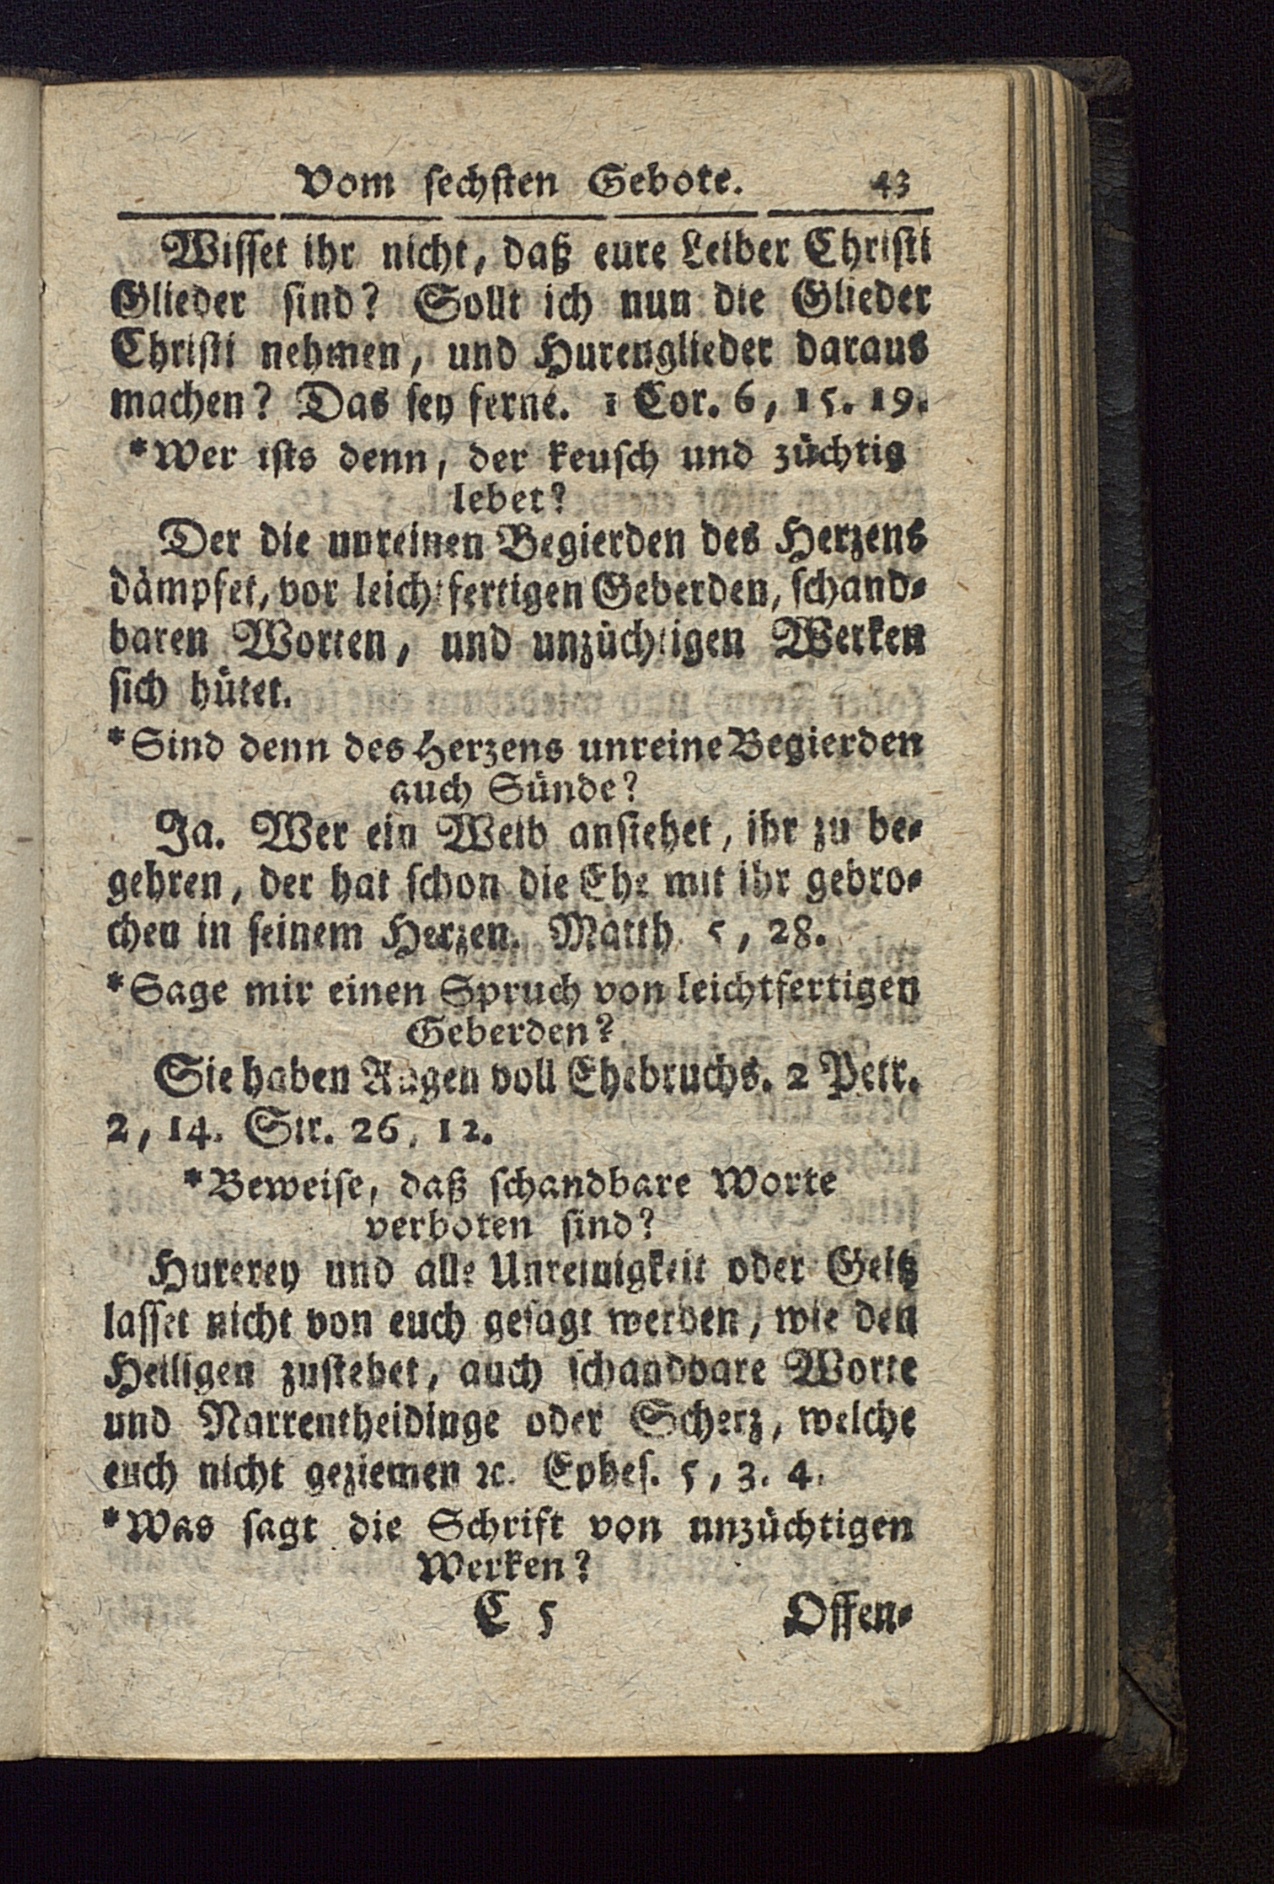 Vom sechsten Gebote. 43
Wisset ihr nicht, daß eure Leiber Christi
Glieder sind? Sollt ich nun die Glieder
Christi nehmen, und Hurenglieder daraus
machen? Das sey ferne. 1 Cor. 6, 15. 19.
*Wer ists denn, der keusch und züchtig
lebet?
Der die unreinen Begierden des Herzens
dämpfet, vor leichtfertigen Geberden, schand-
baren Worten, und unzüchtigen Werken
sich hütet.
*Sind denn des Herzens unreine Begierden
auch Sünde?
Ja. Wer ein Weib ansiehet, ihr zu be-
gehren, der hat schon die Ehe mit ihr gebro-
chen in seinem Herzen. Matth. 5, 28.
*Sage mir einen Spruch von leichtfertigen
Geberden?
Sie haben Augen voll Ehebruchs. 2 Petr.
2, 14. Sir. 26, 12.
*Beweise, daß schandbare Worte
verboten sind?
Hurerey und alle Unreinigkeit oder Geitz
lasset nicht von euch gesagt werden, wie den
Heiligen zustehet, auch schandbare Worte
und Narrentheidinge oder Scherz, welche
euch nicht geziemen ꝛc. Ephes. 5, 3. 4.
*Was sagt die Schrift von unzüchtigen
Werken?
C 5 Offen-